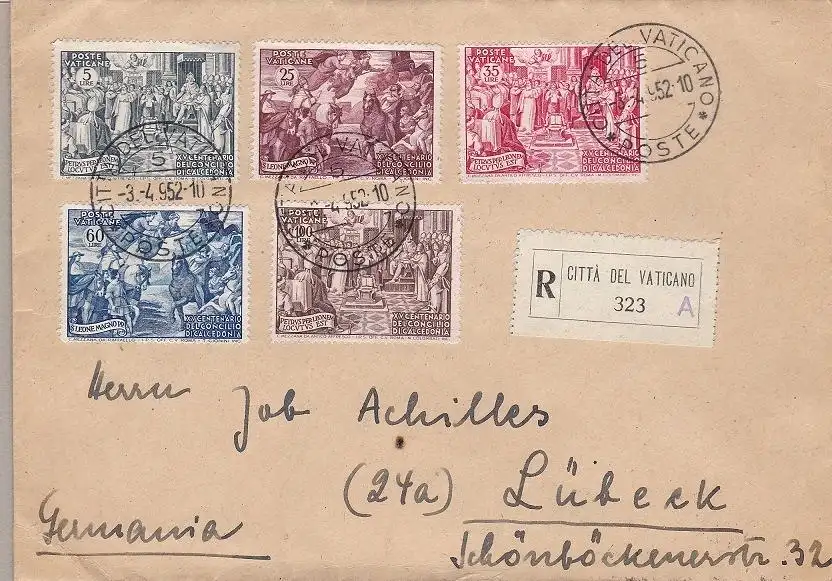 POSTE
VATICANE
5
LIRE
PETRUS PER LEONEM
LOCUTUS EST
XV CENTENARIO
DEL CONCILIO
DI CALCEDONIA
POSTE
VATICANE
25
LIRE
S. LEONE MAGNO PP.
XV CENTENARIO
DEL CONCILIO
DI CALCEDONIA
POSTE
VATICANE
35
LIRE
PETRUS PER LEONEM
LOCUTUS EST
XV CENTENARIO
DEL CONCILIO
DI CALCEDONIA
CITTÀ DEL VATICANO
-3.-4.952.10
* POSTE *
CITTÀ DEL VATICANO
-4.952.10
* POSTE *
CITTÀ DEL VATICANO
-3.-4.952.10
* POSTE *
POSTE
VATICANE
60
LIRE
S. LEONE MAGNO PP.
XV CENTENARIO
DEL CONCILIO
DI CALCEDONIA
POSTE
VATICANE
100
LIRE
PETRUS PER LEONEM
LOCUTUS EST
XV CENTENARIO
DEL CONCILIO
DI CALCEDONIA
R CITTÀ DEL VATICANO
323 A
Herrn Job Achilles
(24a) Lübeck
Germania
Schönböckenerstr. 32